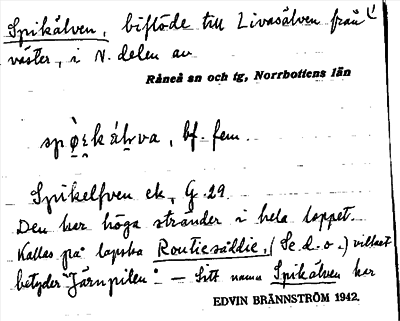 Spikälven, biflöde till Livasälven från
väster, i N. delen av
Råneå sn och tg, Norrbottens län
bf. fem.
Spikelfven ek. G.29.
Den har höga stränder i hela loppet.
Kallas på lapska Routiesäldie, (Se d. o.) vilket
betyder "Järnpilen". — Sitt namn Spikälven har
EDVIN BRÄNNSTRÖM 1942.